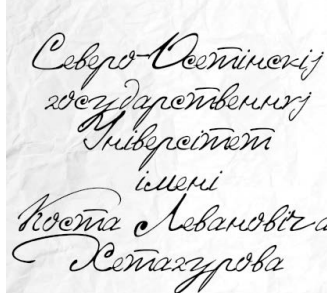 Северо-Осетінскіј
государственныј
Універсітет
імені
Коста Левановіча
Хетагурова